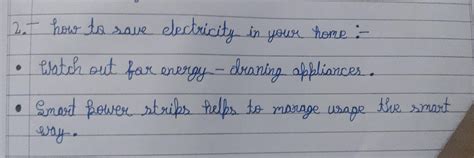 2.- how to save electricity in your home :-
• Watch out for energy - draning appliances.
• Smart power strips helps to manage usage the smart
way.